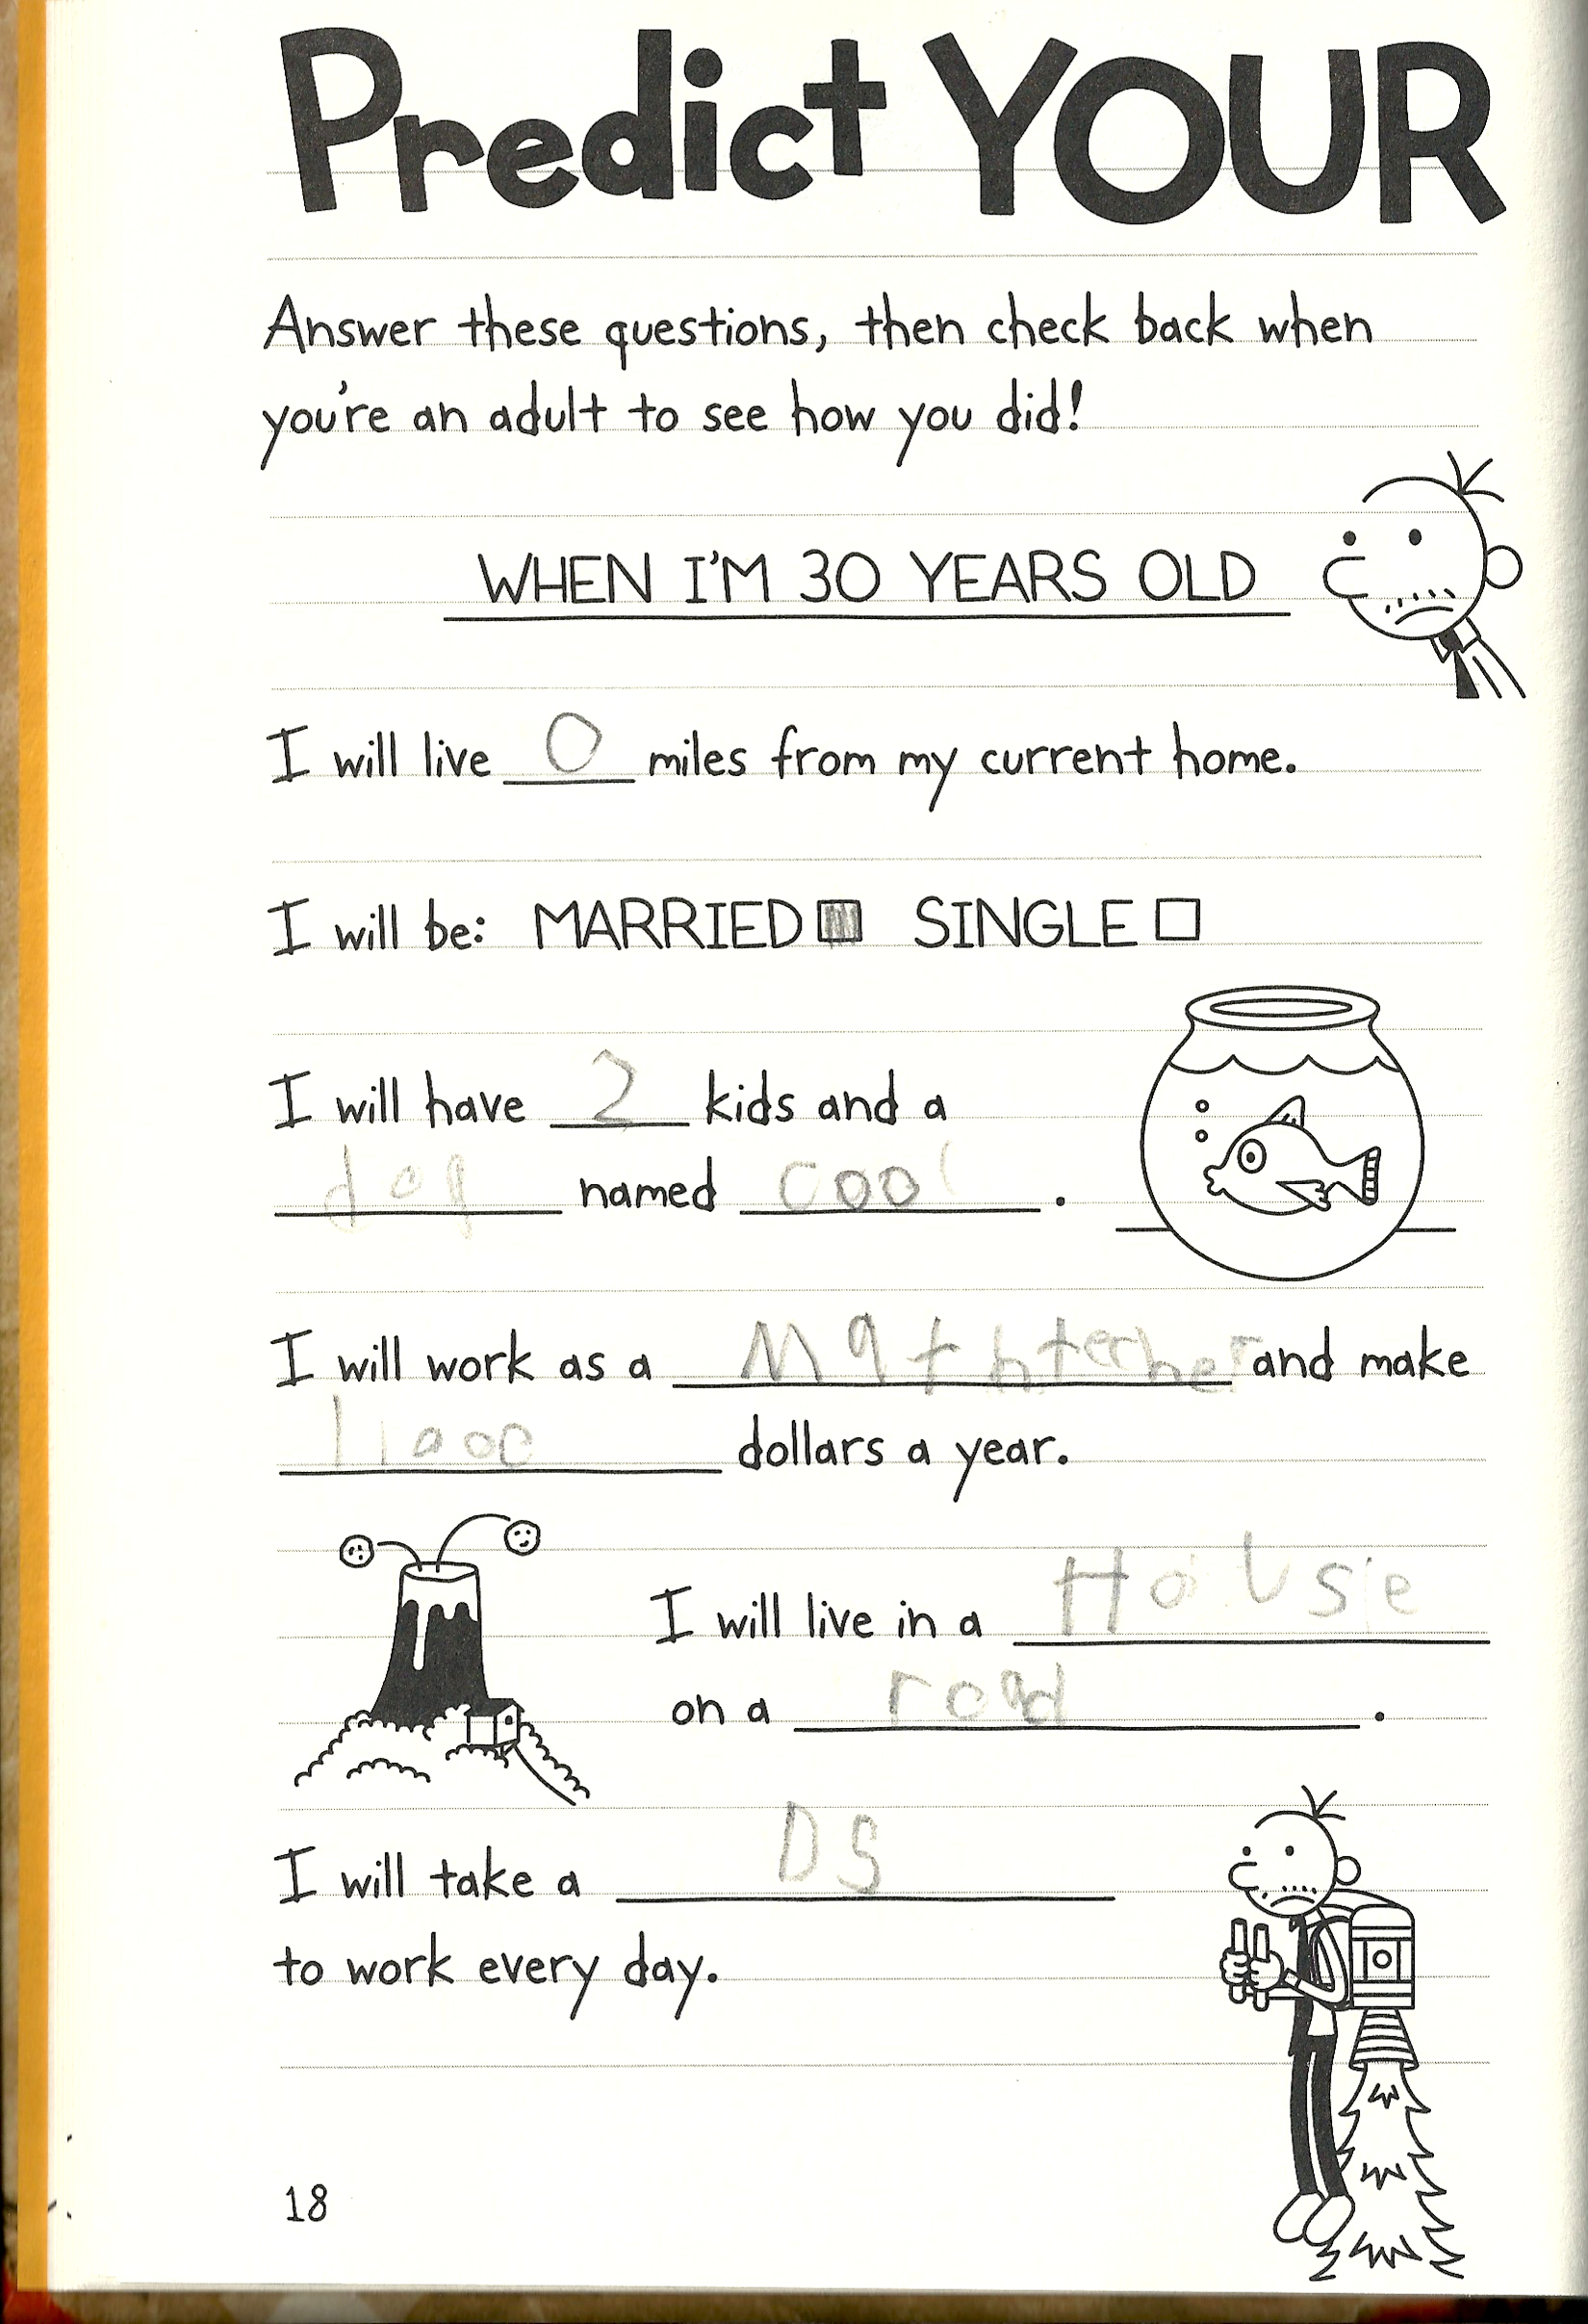 Predict YOUR
Answer these questions, then check back when
you're an adult to see how you did!
WHEN I'M 30 YEARS OLD
I will live 0 miles from my current home.
I will be: MARRIED SINGLE
I will have 2 kids and a
dog named cool.
I will work as a Math techer and make
11000 dollars a year.
I will live in a House
on a road.
I will take a DS
to work every day.
18